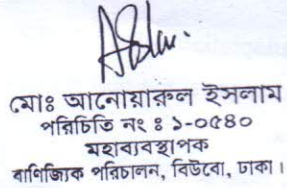 মোঃ আনোয়ারুল ইসলাম
পরিচিতি নং ঃ ১-০৫৪০
মহাব্যবস্থাপক
বাণিজ্যিক পরিচালন, বিউবো, ঢাকা।